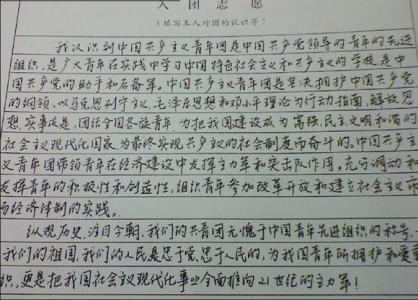 入团志愿
（填写本人对团的认识等）
我认识到中国共产主义青年团是中国共产党领导的青年的先进
组织，是广大青年在实践中学习中国特色社会主义和共产主义的学校，是中
国共产党的助手和后备军。中国共产主义青年团是坚决拥护中国共产党
的纲领，以马克思列宁主义，毛泽东思想和邓小平理论为行动指南，解放思
想，实事求是，团结全国各族青年，为把我国建设成为富强，民主文明和谐的
社会主义现代化国家，为最终实现共产主义的社会制度而奋斗的。中国共产主
义青年团带领青年在经济建设中发挥主力军和突击队作用。充分调动和
发挥青年的积极性和创造性，组织青年参加改革开放和建立社会主义市
场经济体制的实践。
纵观历史，注目今朝，我们的共青团无愧于中国青年先进组织的称号。
我们的祖国，我们的人民是忠于党，忠于人民的，为我国青年所拥护和爱
织，更是把我国社会主义现代化事业全面推向21世纪的主力军！